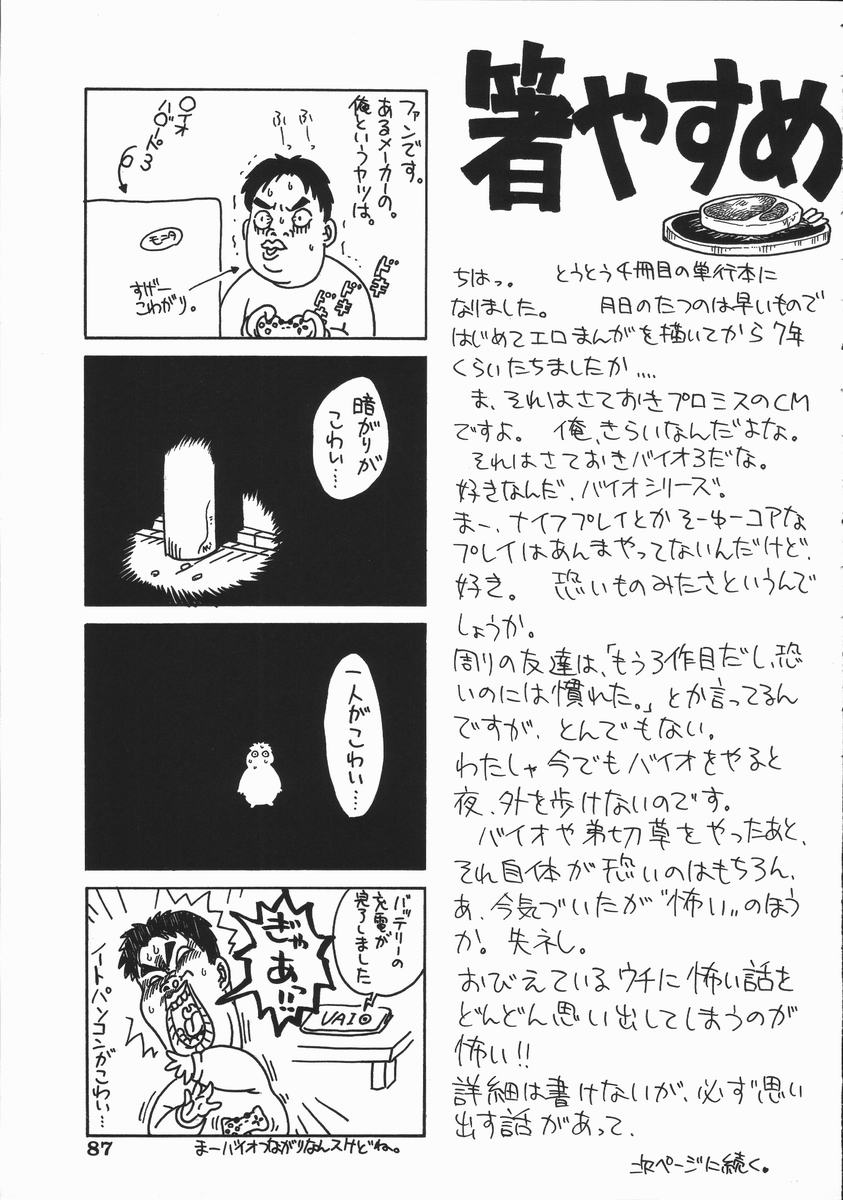 箸やすめ
ちはっ。 とうとう4冊目の単行本に
なりました。 月日のたつのは早いもので
はじめてエロまんがを描いてから7年
くらいたちましたか....
ま、それはさておきプロミスのCM
ですよ。 俺、きらいなんだよな。
それはさておきバイオ3だな。
好きなんだ、バイオシリーズ。
まー、ナイフプレイとかそーゆーコアな
プレイはあんまやってないんだけど、
好き。 恐いものみたさというんで
しょうか。
周りの友達は、「もう3作目だし、恐
いのには慣れた。」とか言ってるん
ですが、とんでもない。
わたしゃ今でもバイオをやると
夜、外を歩けないのです。
バイオや弟切草をやったあと、
それ自体が恐いのはもちろん、
あ、今気づいたが“怖い„のほう
か。失ネし。
おびえているウチに怖い話を
どんどん思い出してしまうのが
怖い!!
詳細は書けないが、必ず思い
出す話があって、
次ページに続く。
ファンです。
あるメーカーの。
俺というヤツは。
ふーっ
ふーっ
〇イオ
ハ〇ード3
の
モニタ
すげー
こわがり。
ドキ
ドキ
ドキ
暗がりが
こわい…
一人が
こわい…
バッテリーの
充電が
完了しました
ぎゃあっ!!
VAIO
ノートパソコンがこわい…
まーバイオつながりなんスけどね。
87